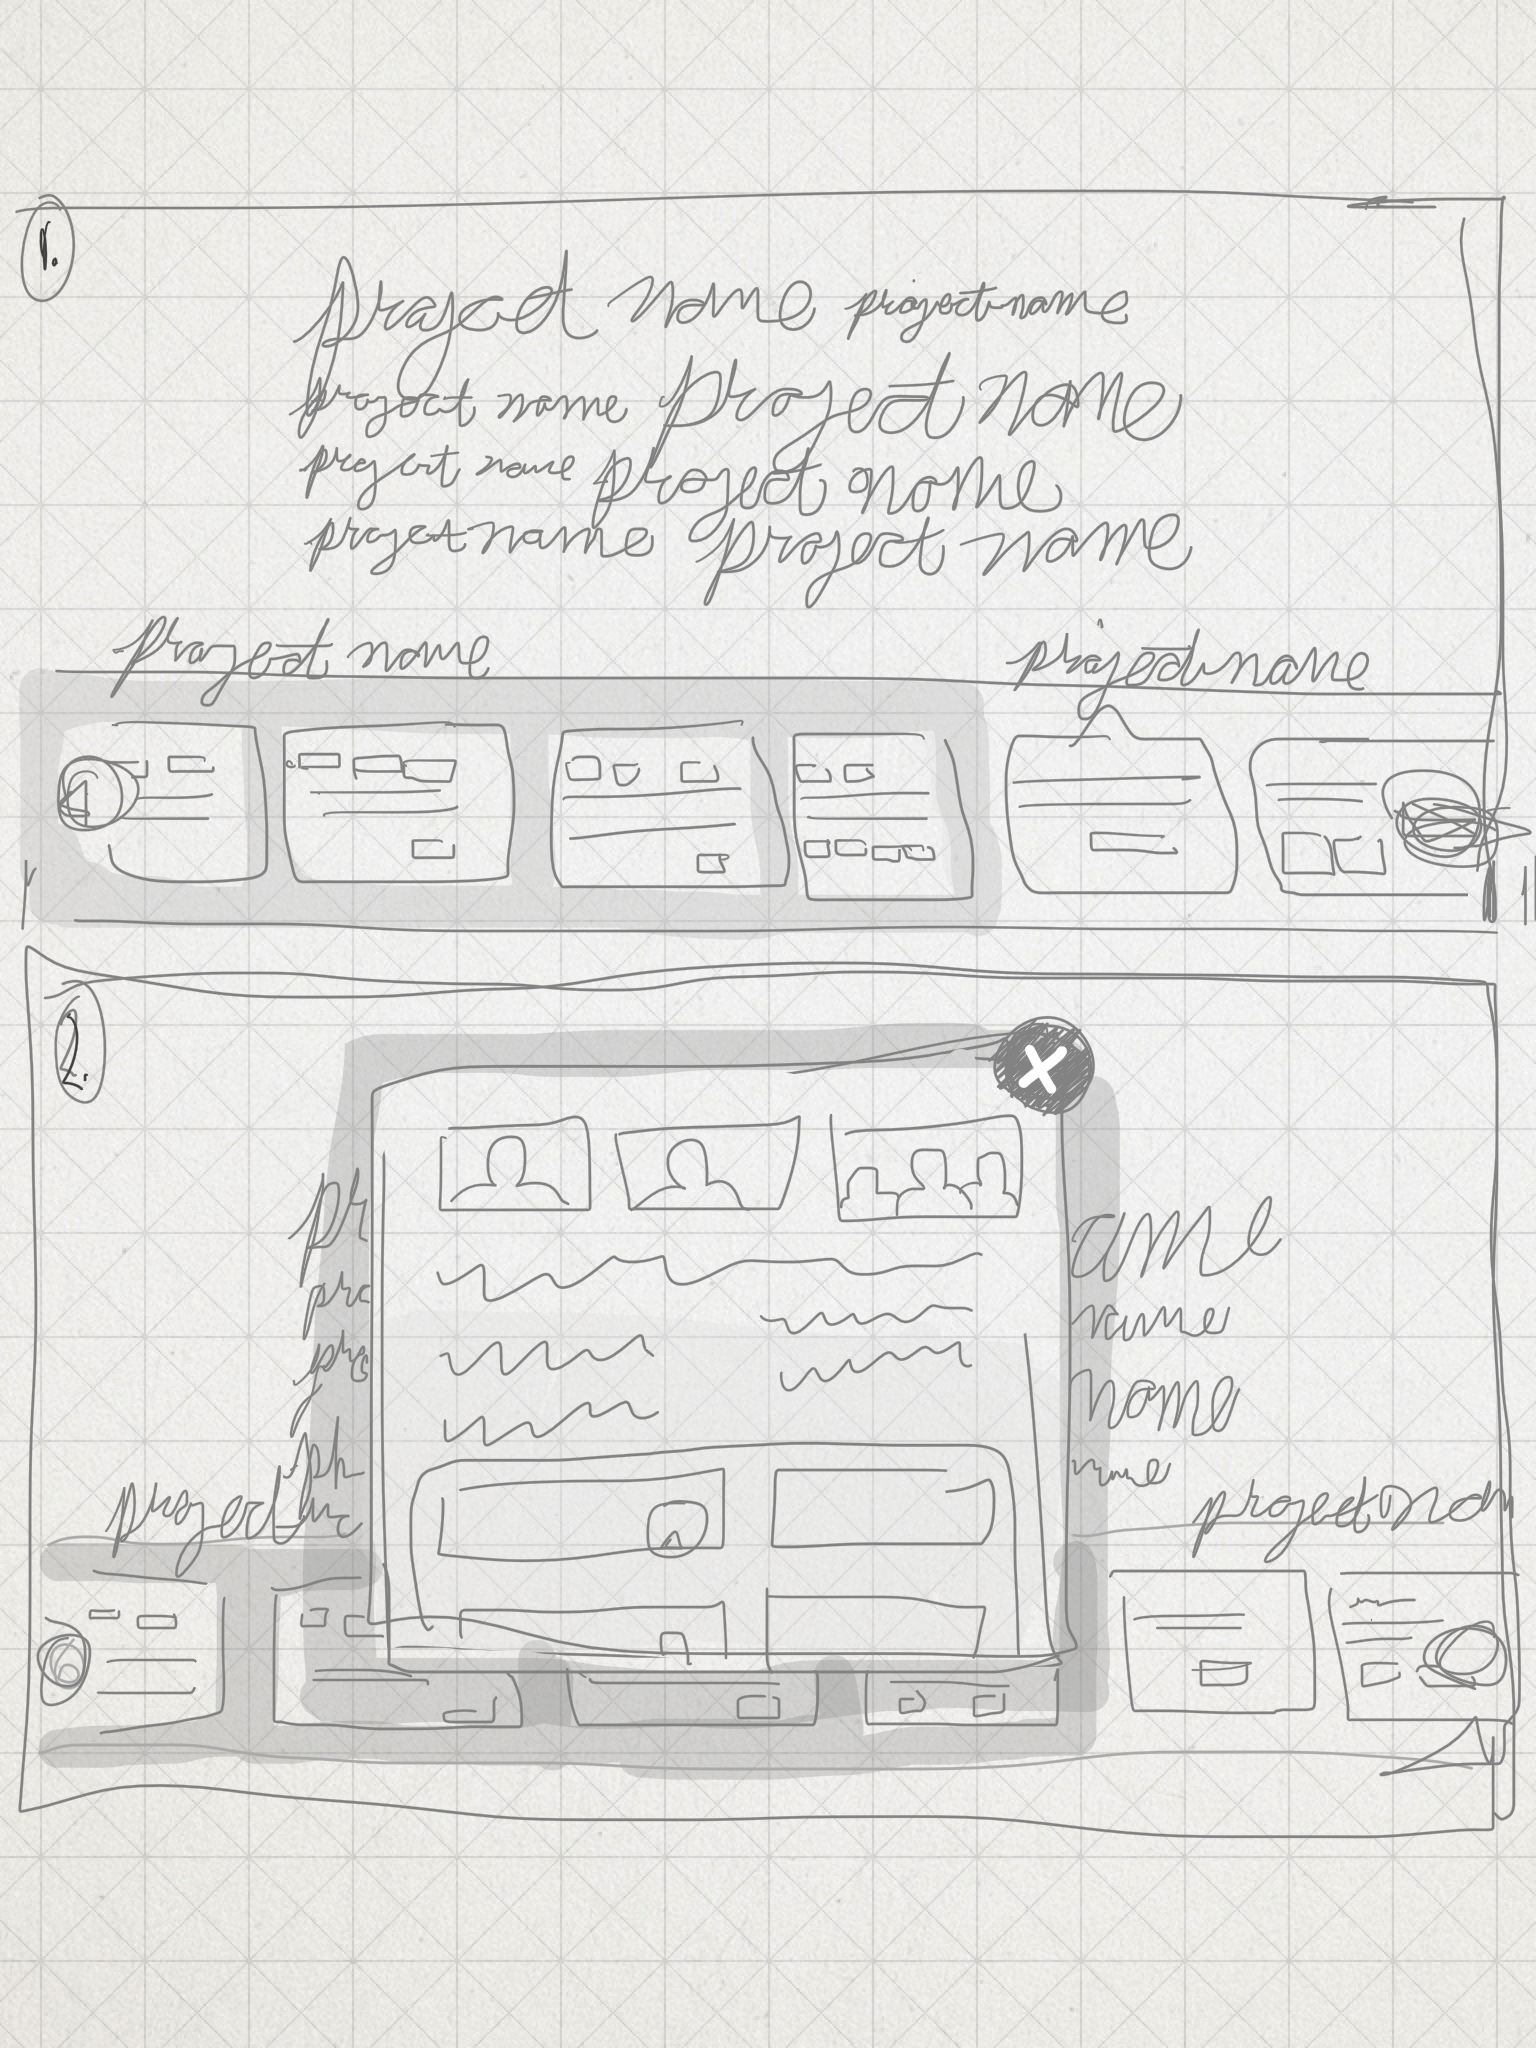 1.
project name project name
project name project name
project name project name
project name project name
project name project name
2.
ame
name
name
project name